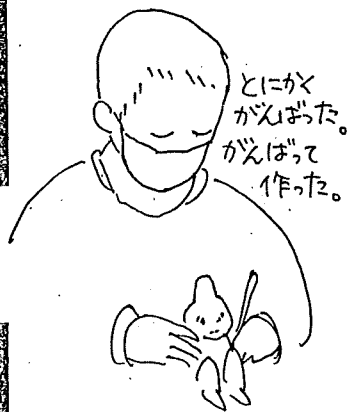 とにかく
がんばった。
がんばって
作った。